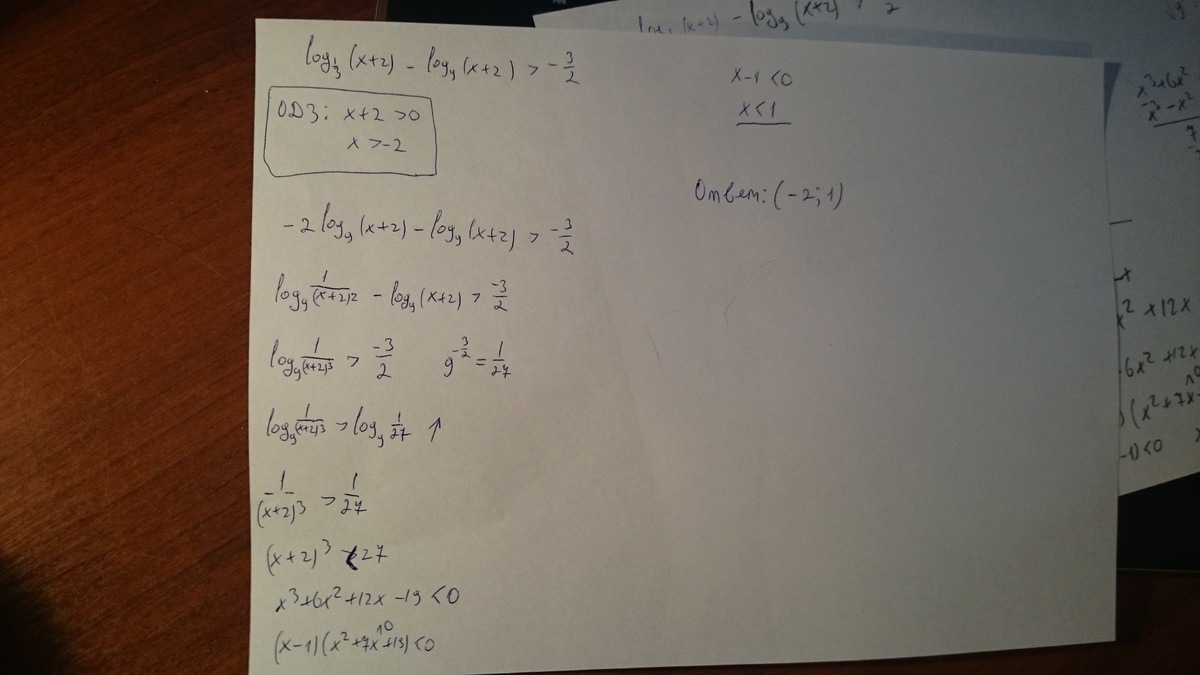 log_{1/3}(x+2) - log₉(x+2) > -3/2
ОДЗ: x+2 >0
x >-2
-2log₉(x+2) - log₉(x+2) > -3/2
log₉ 1/(x+2)² - log₉(x+2) > -3/2
log₉ 1/(x+2)³ > -3/2    9^{-3/2} = 1/27
log₉ 1/(x+2)³ > log₉ 1/27 ↑
1/(x+2)³ > 1/27
(x+2)³ < 27
x³+6x²+12x -19 <0
(x-1)(x²+7x+19) <0
x-1 <0
x<1
Ответ: (-2; 1)
(x+2) - log₉(x+2) >
2
x³+6x²
x³-x²
7
x² +12x
6x² +12x
(x²+7x
-1) <0